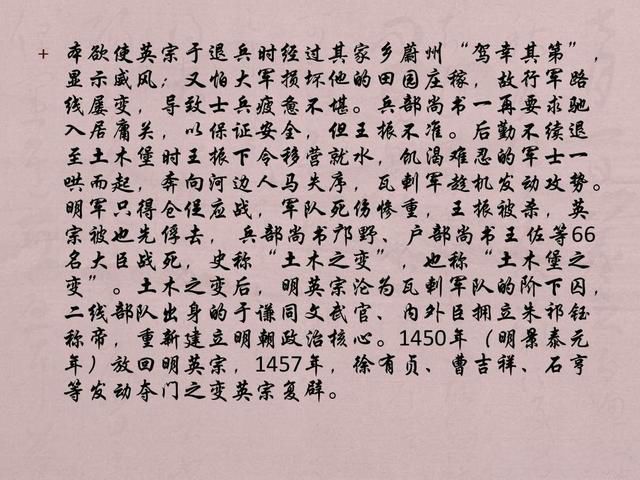 + 本欲使英宗于退兵时经过其家乡蔚州“驾幸其第”，
显示威风；又怕大军损坏他的田园庄稼，故行军路
线屡变，导致士兵疲惫不堪。兵部尚书一再要求驰
入居庸关，以保证安全，但王振不准。后勤不续退
至土木堡时王振下令移营就水，饥渴难忍的军士一
哄而起，奔向河边人马失序，瓦剌军趁机发动攻势。
明军只得仓促应战，军队死伤惨重，王振被杀，英
宗被也先俘去，兵部尚书邝野、户部尚书王佐等66
名大臣战死，史称“土木之变”，也称“土木堡之
变”。土木之变后，明英宗沦为瓦剌军队的阶下囚，
二线部队出身的于谦同文武官、内外臣拥立朱祁钰
称帝，重新建立明朝政治核心。1450年（明景泰元
年）放回明英宗，1457年，徐有贞、曹吉祥、石亨
等发动夺门之变英宗复辟。